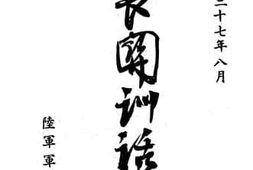 二十七年八月
長關訓話
陸軍軍